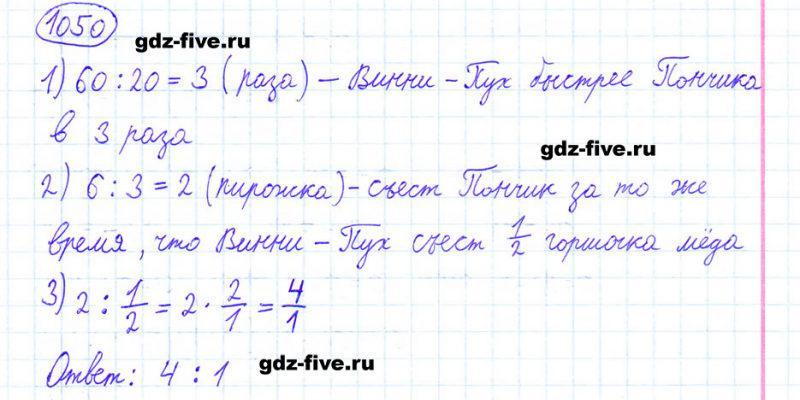 1050
gdz-five.ru
1) 60 : 20 = 3 (раза) – Винни – Пух быстрее Пончика
в 3 раза
gdz-five.ru
2) 6 : 3 = 2 (пирожка) – съест Пончик за то же
время, что Винни – Пух съест 1/2 горшочка мёда
3) 2 : 1/2 = 2 · 2/1 = 4/1
Ответ: 4 : 1
gdz-five.ru